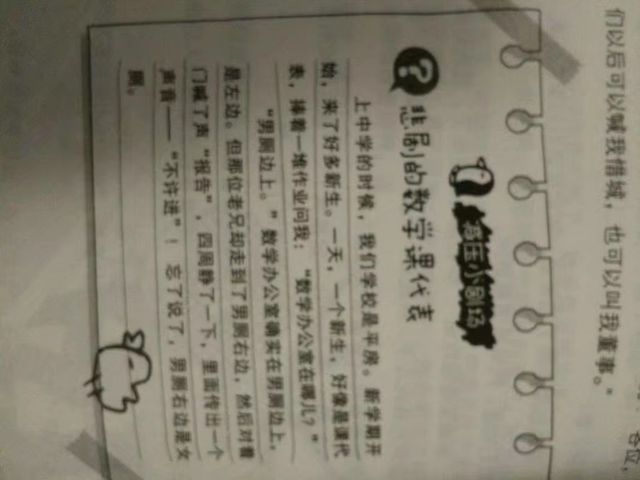 们以后可以喊我惜城，也可以叫我董事。"
减压小剧场
悲剧的数学课代表
上中学的时候，我们学校是平房。新学期开
始，来了好多新生。一天，一个新生，好像是课代
表，捧着一堆作业问我："数学办公室在哪儿？"
"男厕边上。"数学办公室确实在男厕边上，
是左边。但那位老兄却走到了男厕右边，然后对着
门喊了声"报告"，四周静了一下，里面传出一个
声音——"不许进"！忘了说了，男厕右边是女
厕。